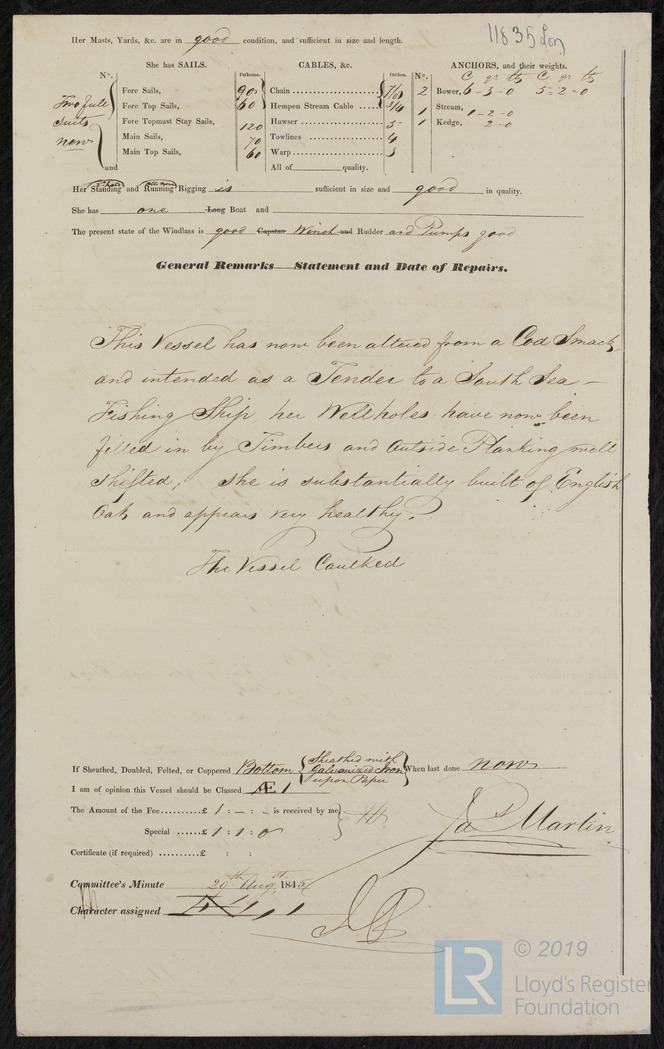 11835 Lon
Her Masts, Yards, &c. are in good condition, and sufficient in size and length.
She has SAILS.
CABLES, &c.
ANCHORS, and their weights.
No.
Fathoms.
Inches.
No.
C qr lbs C qr lbs
Two full
Suits
now
and
Fore Sails,
Fore Top Sails,
Fore Topmast Stay Sails,
Main Sails,
Main Top Sails,
90
60
120
70
60
Chain
Hempen Stream Cable
Hawser
Towlines
Warp
All of quality.
5
4
3
2 Bower, 6-3-0 5-2-0
1 Stream, 1-2-0
1 Kedge, 2-0
Her Standing and Running Rigging is sufficient in size and good in quality.
She has one Long Boat and
The present state of the Windlass is good Capstan Winch and Rudder and Pumps good
General Remarks—Statement and Date of Repairs.
This Vessel has now been altered from a Cod Smack,
and intended as a Tender to a South Sea –
Fishing Ship, her Wellholes have now been
filled in by Timbers and Outside Planking well
shifted, she is substantially built of English
Oak and appears very healthy.
The Vessel Caulked
If Sheathed, Doubled, Felted, or Coppered Bottom Sheathed with Galvanized Iron upon Paper When last done now
I am of opinion this Vessel should be Classed Æ 1
The Amount of the Fee..........£ 1 : – : – is received by me,
Special ......£ 1 : 1 : 0
Jas Martin
Certificate (if required) ..........£ : :
Committee's Minute 20th Augt 1845
Character assigned Æ 1
© 2019
LR
Lloyd's Register
Foundation